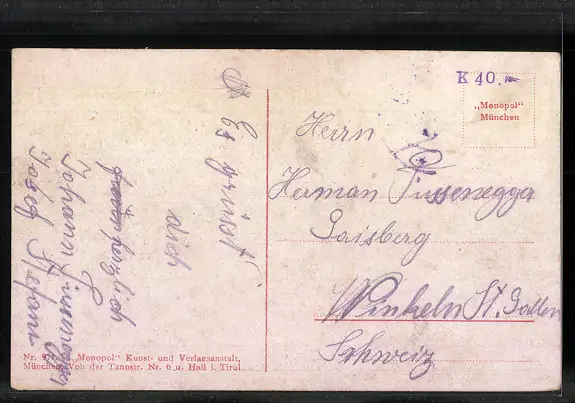 K 40.-
„Monopol"
München
Herrn
Herman Pussenegga
Gaisberg
Winkeln St. Gallen
Schweiz
Es grüsst
dich
herzlich
Johann
Josef Stefan
Nr. „Monopol" Kunst- und Verlagsanstalt,
München, Von der Tannstr. Nr. 6 u. Hall i. Tirol